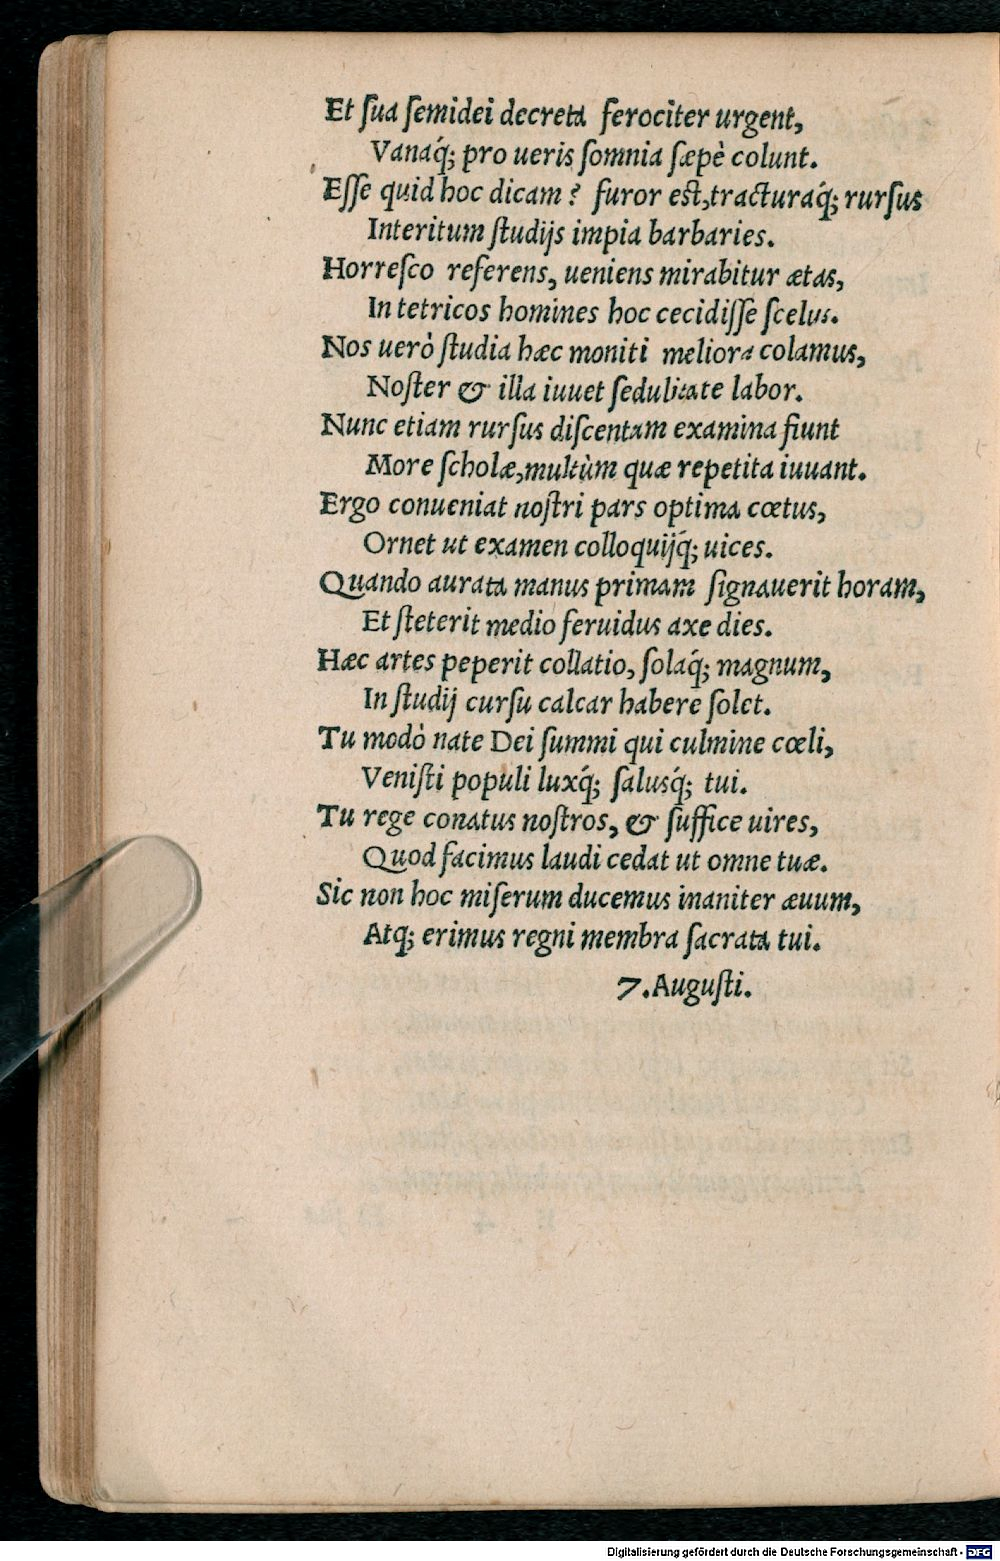 Et ſua ſemidei decreta ferociter urgent,
Vanaq́; pro ueris ſomnia ſæpè colunt.
Eſſe quid hoc dicam? furor est, tracturaq́; rurſus
Interitum ſtudijs impia barbaries.
Horreſco referens, ueniens mirabitur ætas,
In tetricos homines hoc cecidiſſe ſcelus.
Nos uerò ſtudia hæc moniti meliora colamus,
Noſter & illa iuuet ſedulitate labor.
Nunc etiam rurſus diſcentum examina fiunt
More ſcholæ, multùm quæ repetita iuuant.
Ergo conueniat noſtri pars optima cœtus,
Ornet ut examen colloquijq́; uices.
Quando aurata manus primam ſignauerit horam,
Et ſteterit medio feruidus axe dies.
Hæc artes peperit collatio, ſolaq́; magnum,
In ſtudij curſu calcar habere ſolet.
Tu modò nate Dei ſummi qui culmine cœli,
Veniſti populi luxq́; ſalusq́; tui.
Tu rege conatus noſtros, & ſuffice uires,
Quod facimus laudi cedat ut omne tuæ.
Sic non hoc miſerum ducemus inaniter æuum,
Atq; erimus regni membra ſacrata tui.
7. Auguſti.
Digitalisierung gefördert durch die Deutsche Forschungsgemeinschaft - DFG